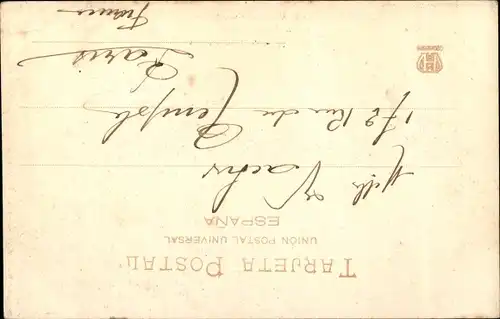 TARJETA POSTAL
UNION POSTAL UNIVERSAL
ESPAÑA
Melle Vachs
172 Rue du Temple
Paris
France